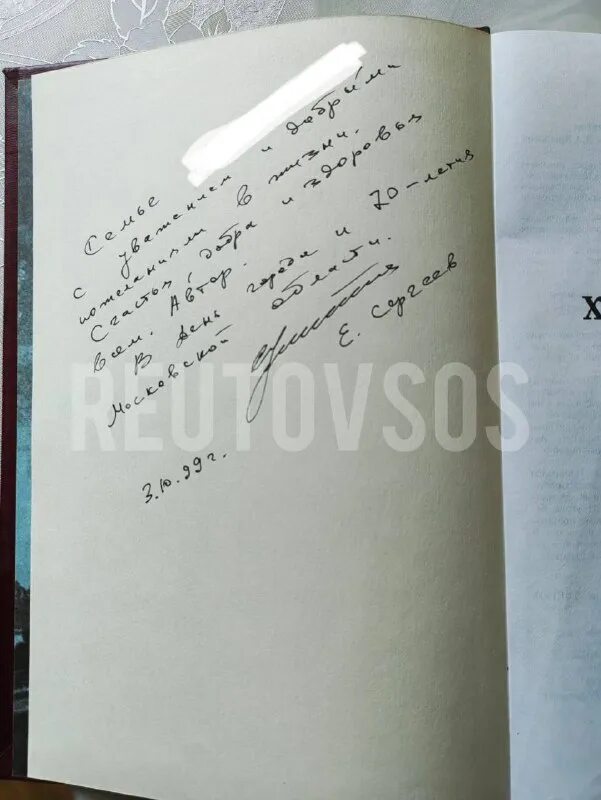 Семье
с уважением и добрыми
пожеланиями в жизни.
Счастья, добра и здоровья
всем. Автор.
В день города и 70-летия
Московской области.
Е. Сергеев
3.10.99 г.
REUTOVSOS
Х